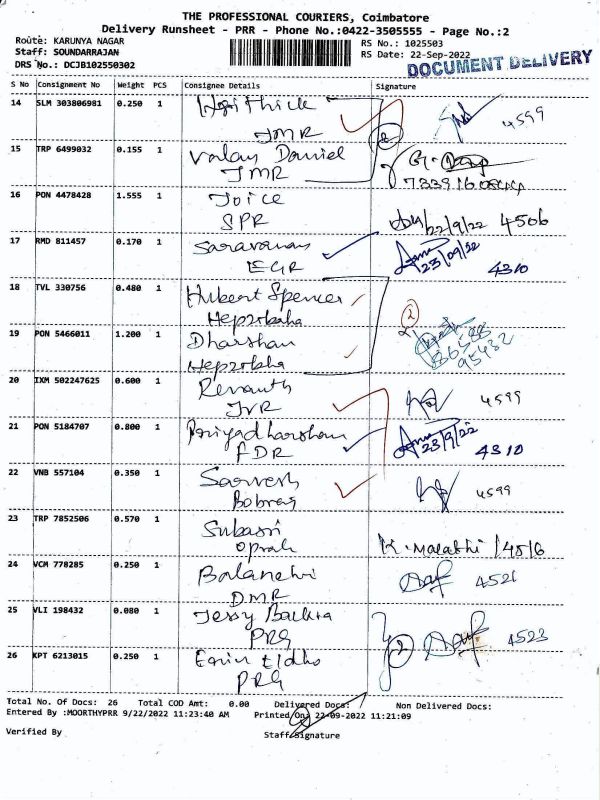 THE PROFESSIONAL COURIERS, Coimbatore
Delivery Runsheet - PRR - Phone No.:0422-3505555 - Page No.:2
Route: KARUNYA NAGAR
RS No.: 1025503
Staff: SOUNDARRAJAN
RS Date: 22-Sep-2022
DRS No.: DCJB102550302
DOCUMENT DELIVERY
S No Consignment No Weight PCS Consignee Details Signature
14 SLM 303806981 0.250 1 4599
JMR
15 TRP 6499032 0.155 1 Valan Daniel
JMR
16 PON 4478428 1.555 1 Joice
SPR 22/9/22 4506
17 RMD 811457 0.170 1 Saravanan 23/09/22
EGR 4310
18 TVL 330756 0.480 1 Hubert Spencer
Hepzibaha 2
19 PON 5466011 1.200 1 Dharshan 86588
Hepzibha 95432
20 IXM 502247625 0.600 1 4599
JVR
21 PON 5184707 0.800 1 Priyadharshan 23/9/22
FDR 4310
22 VNB 557104 0.350 1 Sarvesh 4599
23 TRP 7852506 0.570 1 Subasri
Oprah K. Malathi /4516
24 VCM 778285 0.250 1 4521
DMR
25 VLI 198432 0.080 1 Jessy 4523
PRG 2
26 KPT 6213015 0.250 1
PRG
Total No. Of Docs: 26 Total COD Amt: 0.00 Delivered Docs: Non Delivered Docs:
Entered By :MOORTHYPRR 9/22/2022 11:23:40 AM Printed On: 22-09-2022 11:21:09
Verified By Staff Signature